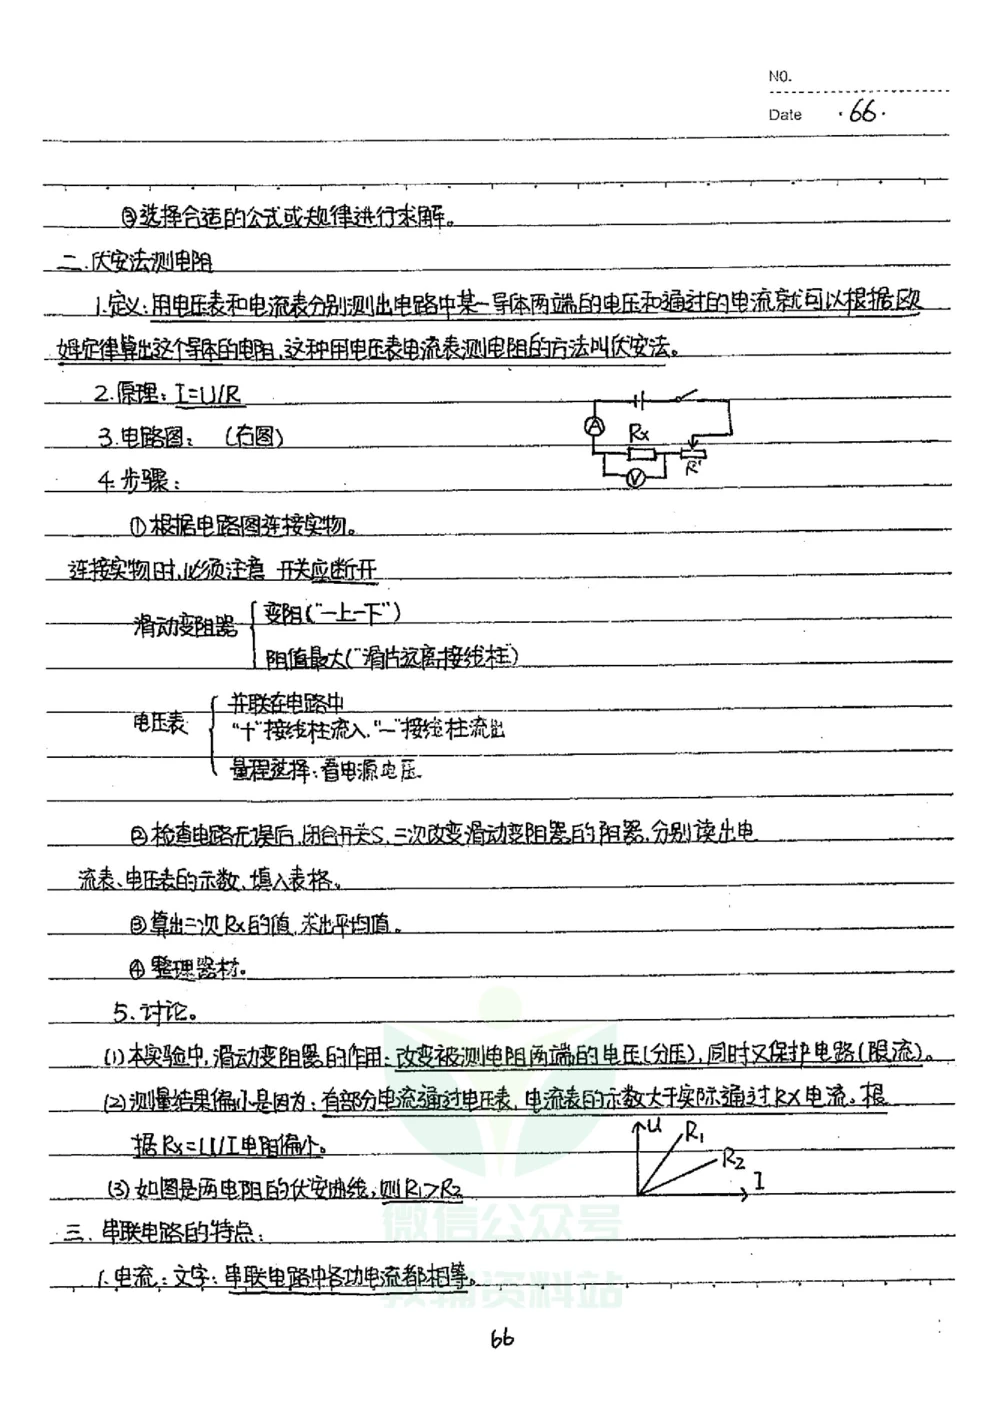 NO.
Date ·66·
③选择合适的公式或规律进行求解。
二.伏安法测电阻
1.定义:用电压表和电流表分别测出电路中某一导体两端的电压和通过的电流就可以根据欧
姆定律算出这个导体的电阻,这种用电压表电流表测电阻的方法叫伏安法。
2.原理:I=U/R
3.电路图: (右图)
A
Rx
V
R'
4.步骤:
①根据电路图连接实物。
连接实物时,必须注意 开关应断开
滑动变阻器
变阻("一上一下")
阻值最大("滑片远离接线柱)
电压表
并联在电路中
"+"接线柱流入,"一"接线柱流出
量程选择:看电源电压
②检查电路无误后,闭合开关S,三次改变滑动变阻器的阻器,分别读出电
流表、电压表的示数,填入表格。
③算出三次Rx的值,求出平均值。
④整理器材。
5.讨论。
(1)本实验中,滑动变阻器的作用:改变被测电阻两端的电压(分压),同时又保护电路(限流)。
(2)测量结果偏小是因为:有部分电流通过电压表,电流表的示数大于实际通过RX电流。根
据Rx=U/I电阻偏小。
U
R₁
R₂
I
(3)如图是两电阻的伏安曲线,则R₁>R₂
三.串联电路的特点:
1.电流:文字:串联电路中各功电流都相等。
微信公众号
教辅资料站
66